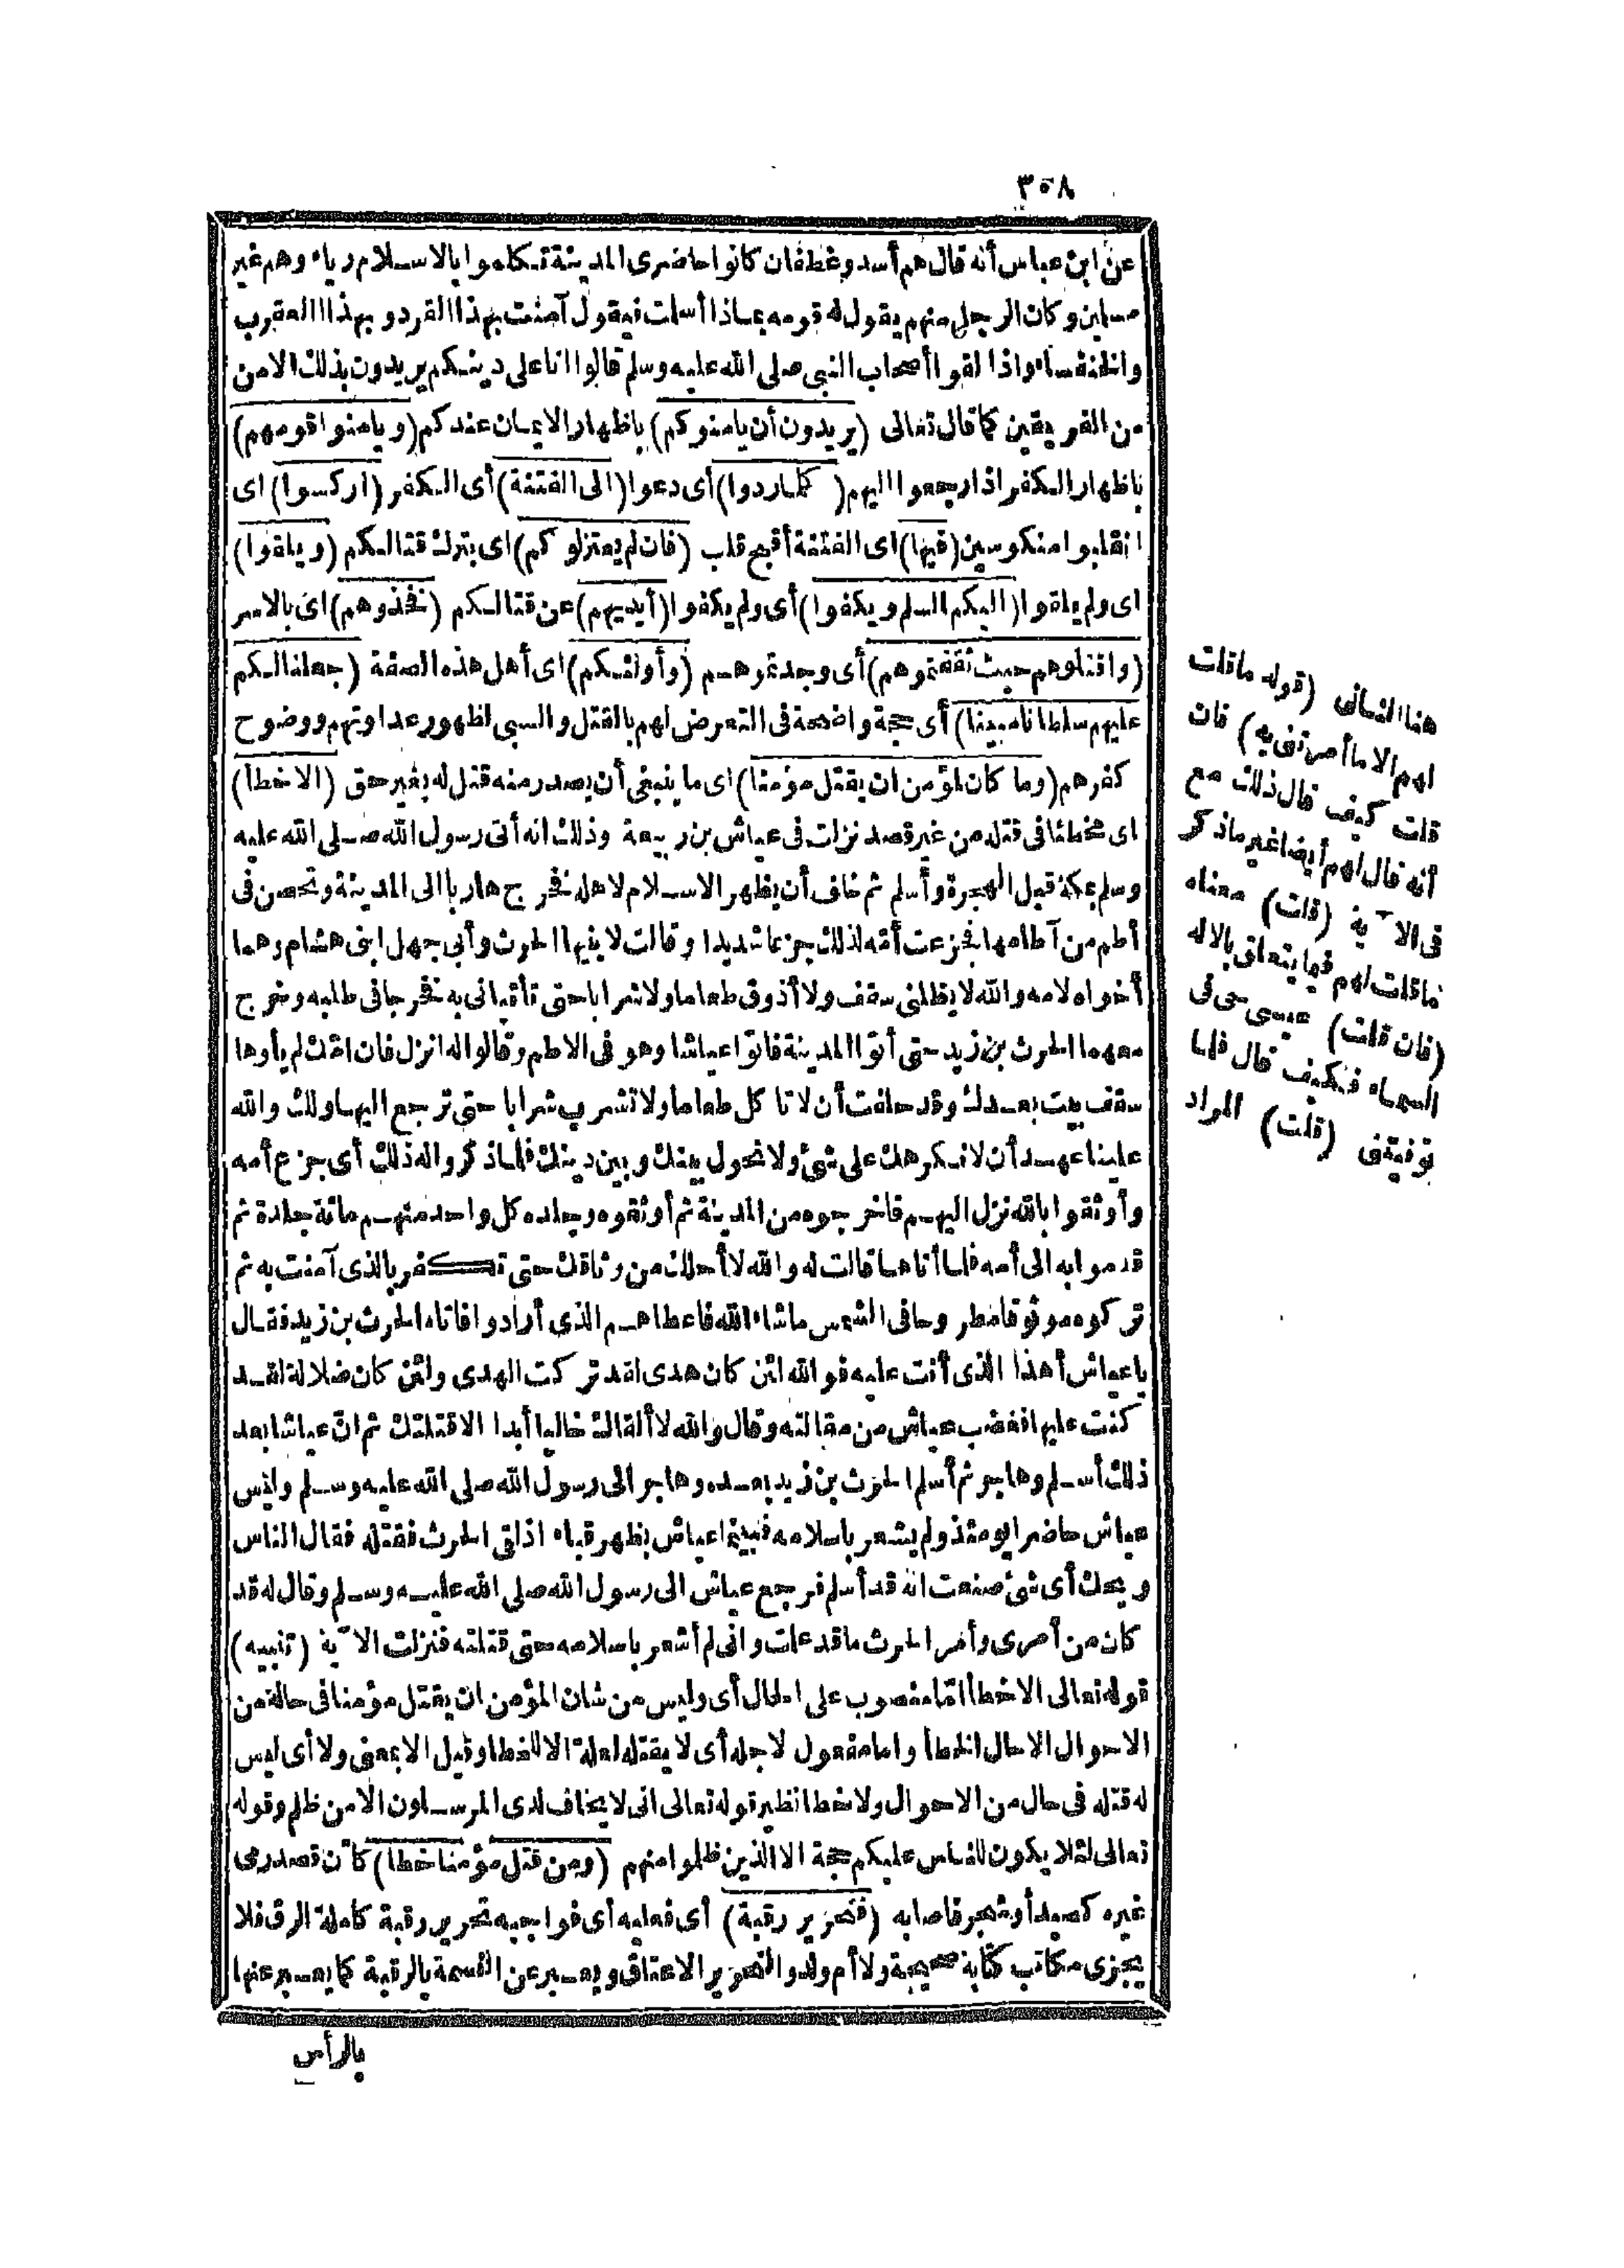 ٣٠٨
عن ابن عباس أنه قال هم أسد وغطفان كانوا حاضرى المدينة تكلموا بالاسلام رياء وهم غير
مسلمين وكان الرجل منهم يقول له قومه بماذا أسلمت فيقول آمنت بهذا القرد وبهذا العقرب
والخنفساء واذا لقوا أصحاب النبى صلى الله عليه وسلم قالوا انا على دينكم يريدون بذلك الامن
من الفريقين كما قال تعالى (يريدون أن يأمنوكم) باظهار الايمان عندكم (ويامنوا قومهم)
باظهار الكفر اذا رجعوا اليهم (كلما ردوا) أى دعوا (الى الفتنة) أى الكفر (اركسوا) اى
انقلبوا منكوسين (فيها) اى الفتنة أقبح قلب (فان لم يعتزلوكم) اى بترك قتالكم (ويلقوا)
اى ولم يلقوا (اليكم السلم ويكفوا) أى ولم يكفوا (أيديهم) عن قتالكم (فخذوهم) اى بالاسر
(واقتلوهم حيث ثقفتموهم) أى وجدتموهم (وأولئكم) اى أهل هذه الصفة (جعلنا لكم
عليهم سلطانا مبينا) أى حجة واضحة فى التعرض لهم بالقتل والسبى لظهور عداوتهم ووضوح
كفرهم (وما كان لمؤمن ان يقتل مؤمنا) اى ما ينبغى أن يصدر منه قتل له بغير حق (الاخطأ)
اى مخطئا فى قتله من غير قصد نزلت فى عياش بن ربيعة وذلك انه أتى رسول الله صلى الله عليه
وسلم بمكة قبل الهجرة وأسلم ثم خاف أن يظهر الاسلام لاهله فخرج هاربا الى المدينة وتحصن فى
أطم من آطامها فجزعت أمّه لذلك جزعا شديدا وقالت لابنيها الحرث وأبى جهل ابنى هشام وهما
أخواه لامه والله لا يظلنى سقف ولا أذوق طعاما ولا شرابا حتى تأتيانى به فخرجا فى طلبه وخرج
معهما الحرث بن زيد حتى أتوا المدينة فاتوا عياشا وهو فى الاطم وقالوا له انزل فان امّك لم يأوها
سقف بيت بعدك وقد حلفت أن لا تاكل طعاما ولا تشرب شرابا حتى ترجع اليها ولك والله
علينا عهد أن لا نكرهك على شئ ولا نحول بينك وبين دينك فلما ذكروا له ذلك أى جزع أمه
وأوثقوا بالله نزل اليهم فاخرجوه من المدينة ثم أوثقوه وجلده كل واحد منهم مائة جلدة ثم
قدموا به الى أمه فلما أتاها قالت له والله لا أحلك من وثاقك حتى تكفر بالذى آمنت به ثم
تركوه موثوقا مطروحا فى الشمس ما شاء الله فاعطاهم الذى أرادوا فاتاه الحرث بن زيد فقال
يا عياش أهذا الذى أنت عليه فوالله لئن كان هدى لقد تركت الهدى ولئن كان ضلالة لقد
كنت عليها فغضب عياش من مقالته وقال والله لا ألقاك خاليا أبدا الاقتلتك ثم انّ عياشا بعد
ذلك أسلم وهاجر ثم أسلم الحرث بن زيد بعده وهاجر الى رسول الله صلى الله عليه وسلم وليس
عياش حاضرا يومئذ ولم يشعر باسلامه فبينما عياش بظهر قباء اذ لقى الحرث فقتله فقال الناس
ويحك أى شئ صنعت انه قد أسلم فرجع عياش الى رسول الله صلى الله عليه وسلم وقال له قد
كان من أمرى وأمر الحرث ما قد علمت وانى لم أشعر باسلامه حتى قتلته فنزلت الآية (تنبيه)
قوله تعالى الاخطأ امّا منصوب على الحال أى وليس من شان المؤمن ان يقتل مؤمنا فى حالة من
الاحوال الاحال الخطأ واما مفعول لاجله أى لا يقتله لعلة الا للخطا وقيل الا بمعنى ولا أى ليس
له قتله فى حال من الاحوال ولا خطا نظير قوله تعالى انى لا يخاف لدى المرسلون الا من ظلم وقوله
تعالى لئلا يكون للناس عليكم حجة الا الذين ظلموا منهم (ومن قتل مؤمنا خطا) كأن قصد رمى
غيره كصيد أو شجر فاصابه (فتحرير رقبة) أى فعليه أى فواجبه تحرير رقبة كاملة الرق فلا
يجزى مكاتب كتابة صحيحة ولا أم ولد والتحرير الاعتاق ويعبر عن النسمة بالرقبة كما يعبر عنها
بالرأس
هنا الثانى (قوله ما قلت
لهم الا ما أمرتنى به) فان
قلت كيف قال ذلك مع
أنه قال لهم أيضا غير ما ذكر
فى الآية (قلت) معناه
ما قلت لهم فيما يتعلق بالاله
(فان قلت) عيسى حى فى
السماء فكيف قال فلما
توفيتنى (قلت) المراد